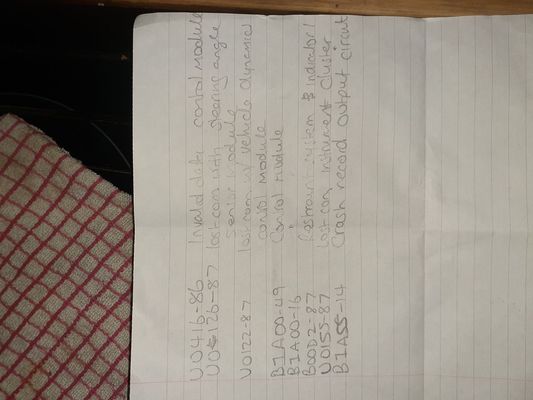 U0416-86 Invalid data control module
U0126-87 lost com with steering angle
sensor module
U0122-87 lost com w/ vehicle dynamics
control module
B1A00-49 Control Module
B1A00-16
B00D2-87 Restraint system & Indicator 1
U0155-87 lost com instrument cluster
B1A55-14 Crash record output circuit